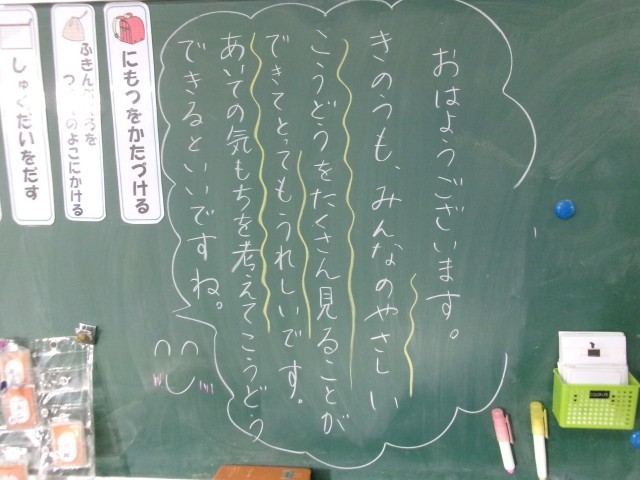 おはようございます。
きのうも、みんなのやさしい
こうどうをたくさん見ることが
できてとってもうれしいです。
あいての気もちを考えてこうどう
できるといいですね。
にもつをかたづける
ふきん
のよこにかける
しゅくだいをだす